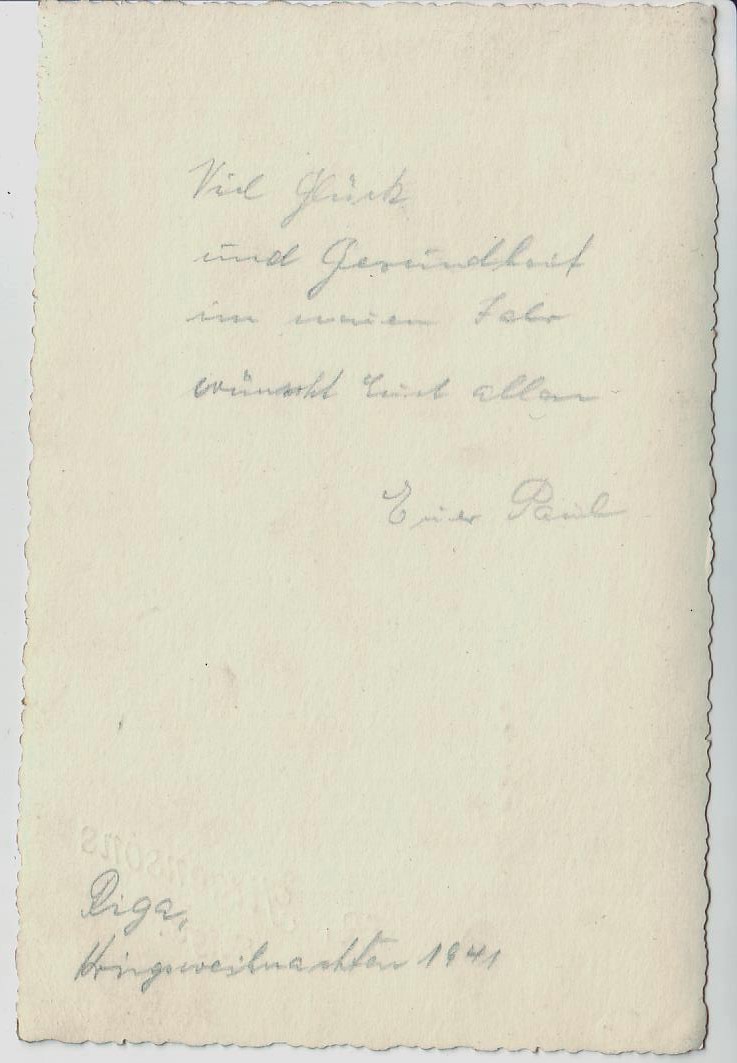 Viel Glück
und Gesundheit
im neuen Jahr
wünscht Euch allen
Euer Paul
Riga,
Kriegsweihnachten 1941